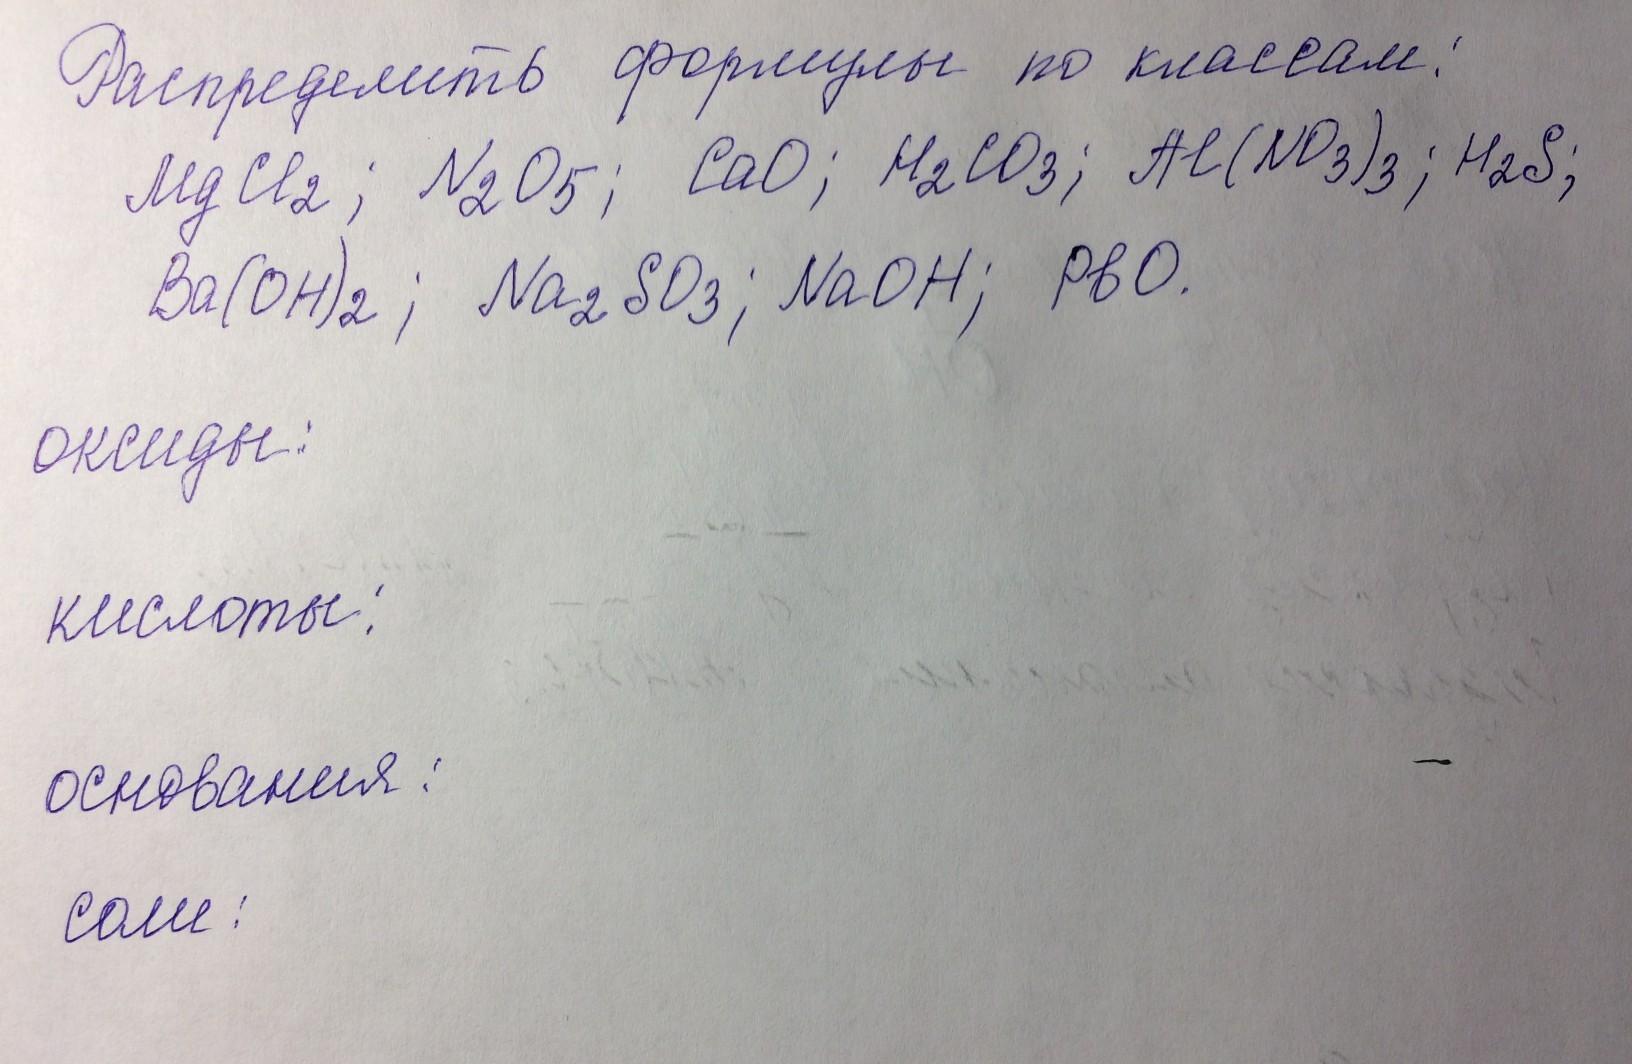 Распределить формулы по классам:
MgCl2; N2O5; CaO; H2CO3; Al(NO3)3; H2S;
Ba(OH)2; Na2SO3; NaOH; PbO.
оксиды:
кислоты:
основания:
соли: